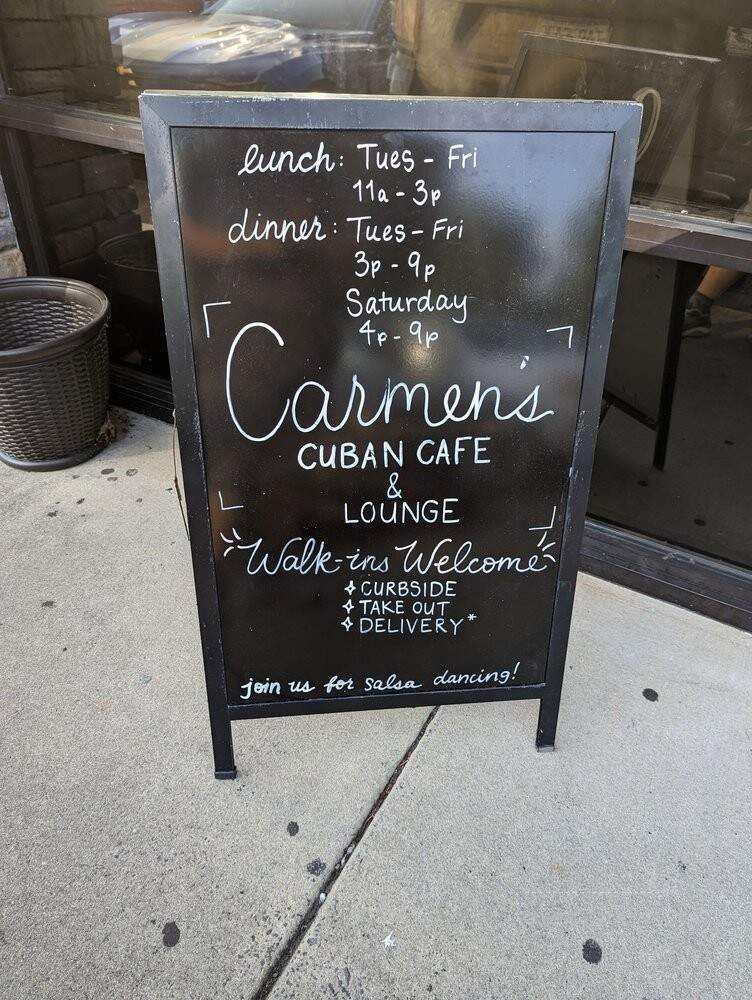 lunch: Tues - Fri
11a - 3p
dinner: Tues - Fri
3p - 9p
Saturday
4p - 9p
Carmen's
CUBAN CAFE
&
LOUNGE
Walk-ins Welcome
✧ CURBSIDE
✧ TAKE OUT
✧ DELIVERY*
join us for salsa dancing!